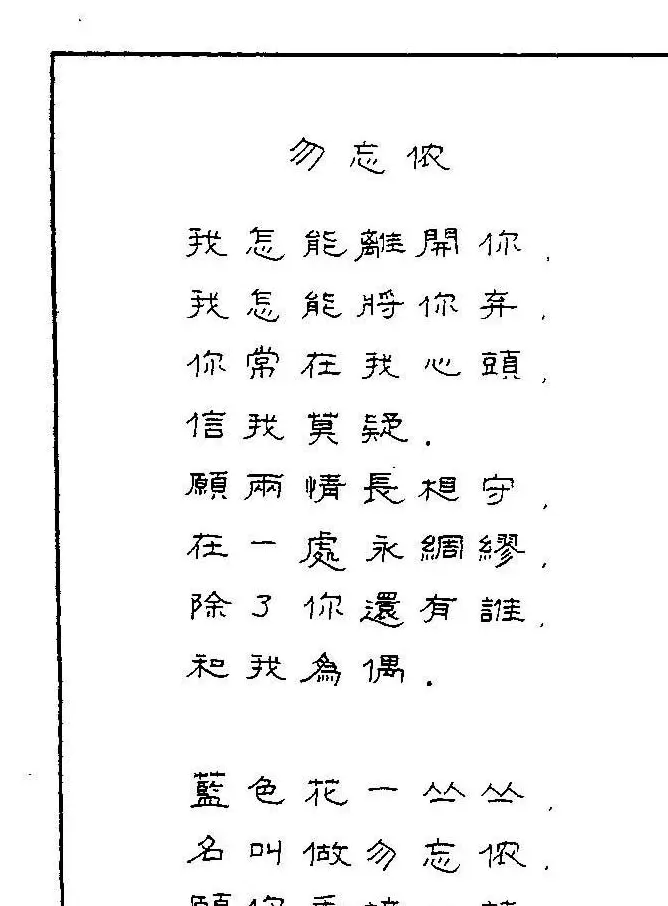 勿忘侬
我怎能離開你,
我怎能將你弃,
你常在我心頭,
信我莫疑.
願兩情長相守,
在一處永綢繆,
除了你還有誰,
和我為偶.
藍色花一丛丛,
名叫做勿忘侬,